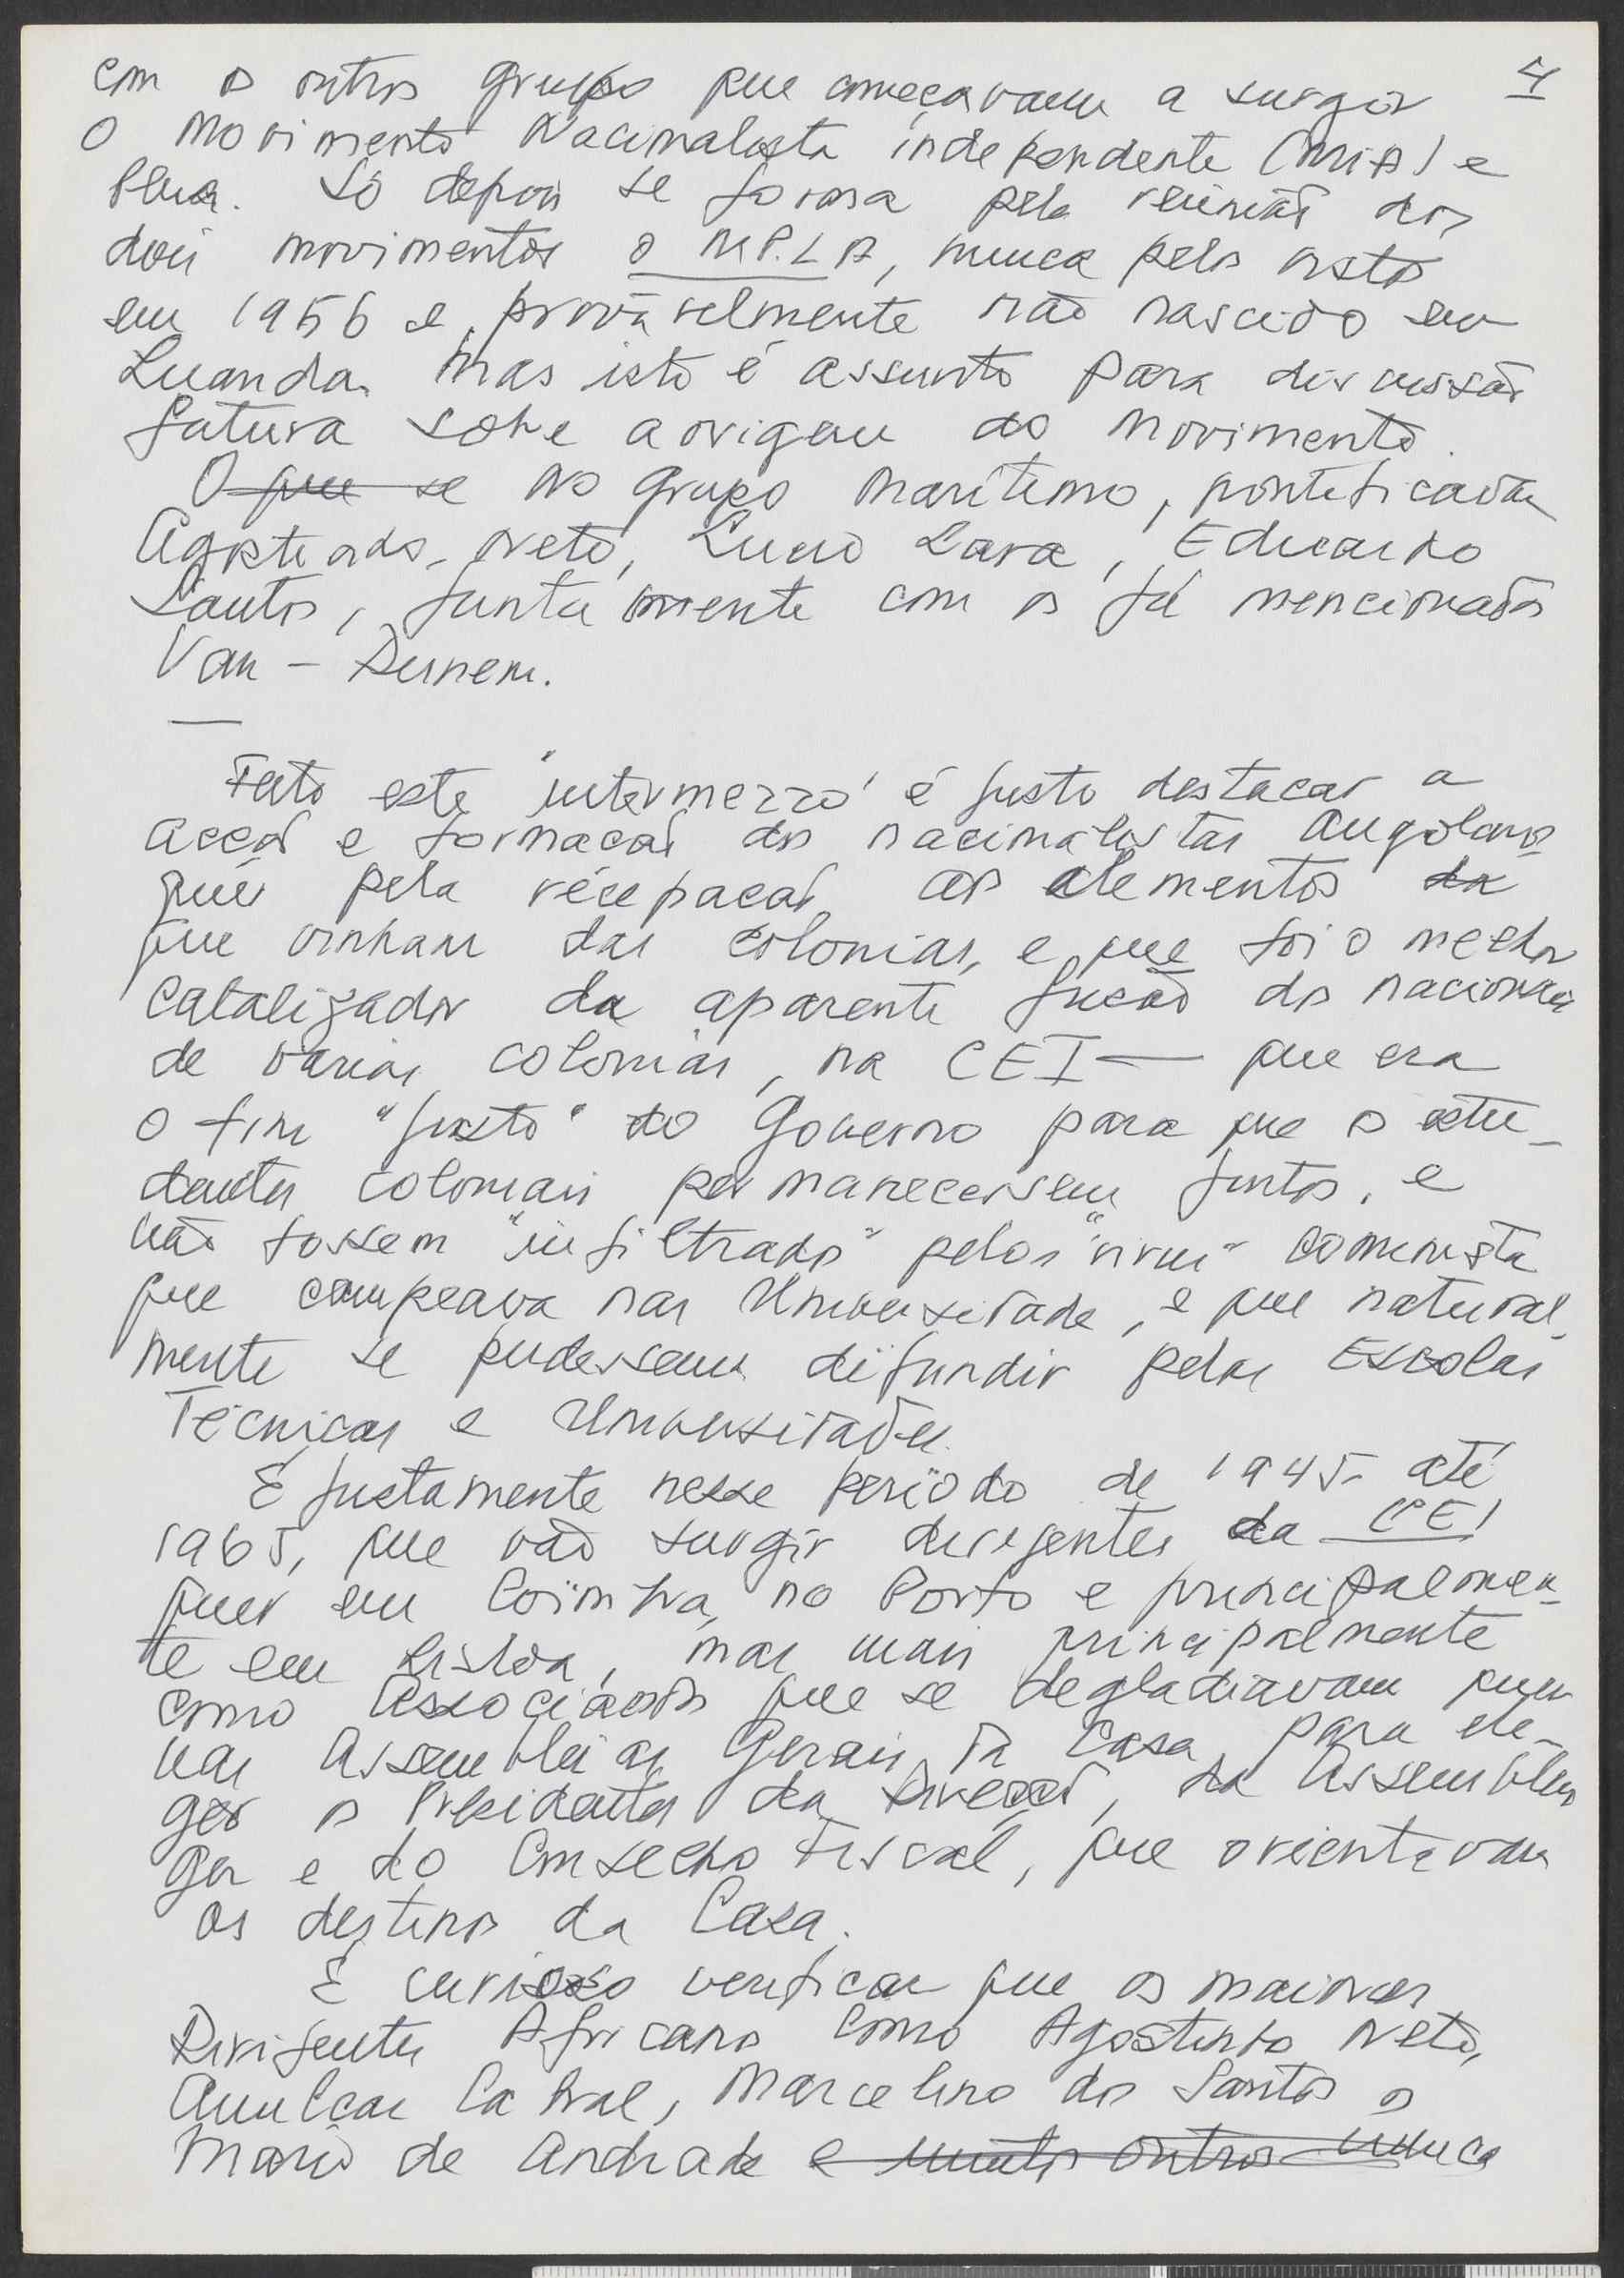 com os outros grupos que começavam a surgir 4
O Movimento Nacionalista independente (MIA) e
Plua. Só depois se forma pela reunião dos
dois movimentos o M.P.L.A, nunca pelo visto
em 1956 e, provàvelmente não nascido em
Luanda. Mas isto é assunto para discussão
futura sobre a origem do Movimento.
O que se no grupo maritimo, pontificavam
Agostinho Neto, Lucio Lara, Eduardo
Santos, juntamente com os já mencionados
Van-Dunem.
—
Feito este "intermezzo" é justo destacar a
acção e formação dos nacionalistas Angolanos
quer pela recepção aos elementos da
que vinham das colonias, e que foi o melhor
Catalizador da aparente fusão dos nacionais
de varias colonias, na CEI — que era
o fim "justo" do Governo para que os estu-
dantes coloniais permanecessem juntos, e
não fossem "infiltrados" pelos "virus" comunista
que campeava nas Universidade, e que natural-
mente se pudessem difundir pelas Escolas
Técnicas e Universidades.
É justamente nesse periodo de 1945- até
1965, que vão surgir dirigentes da CEI
quer em Coimbra, no Porto e principalmen-
te em Lisboa, mas mais principalmente
como Associados que se degladiavam quer
nas Assembleias Gerais da Casa para ele-
ger os Presidentes da Direcção, da Assembleia
Ger e do Conselho Fiscal, que orientavam
os destinos da Casa.
É curioso verificar que os maiores
Dirigentes Africanos como Agostinho Neto,
Amilcar Cabral, Marcelino dos Santos os
Mario de Andrade e muitos outros nunca